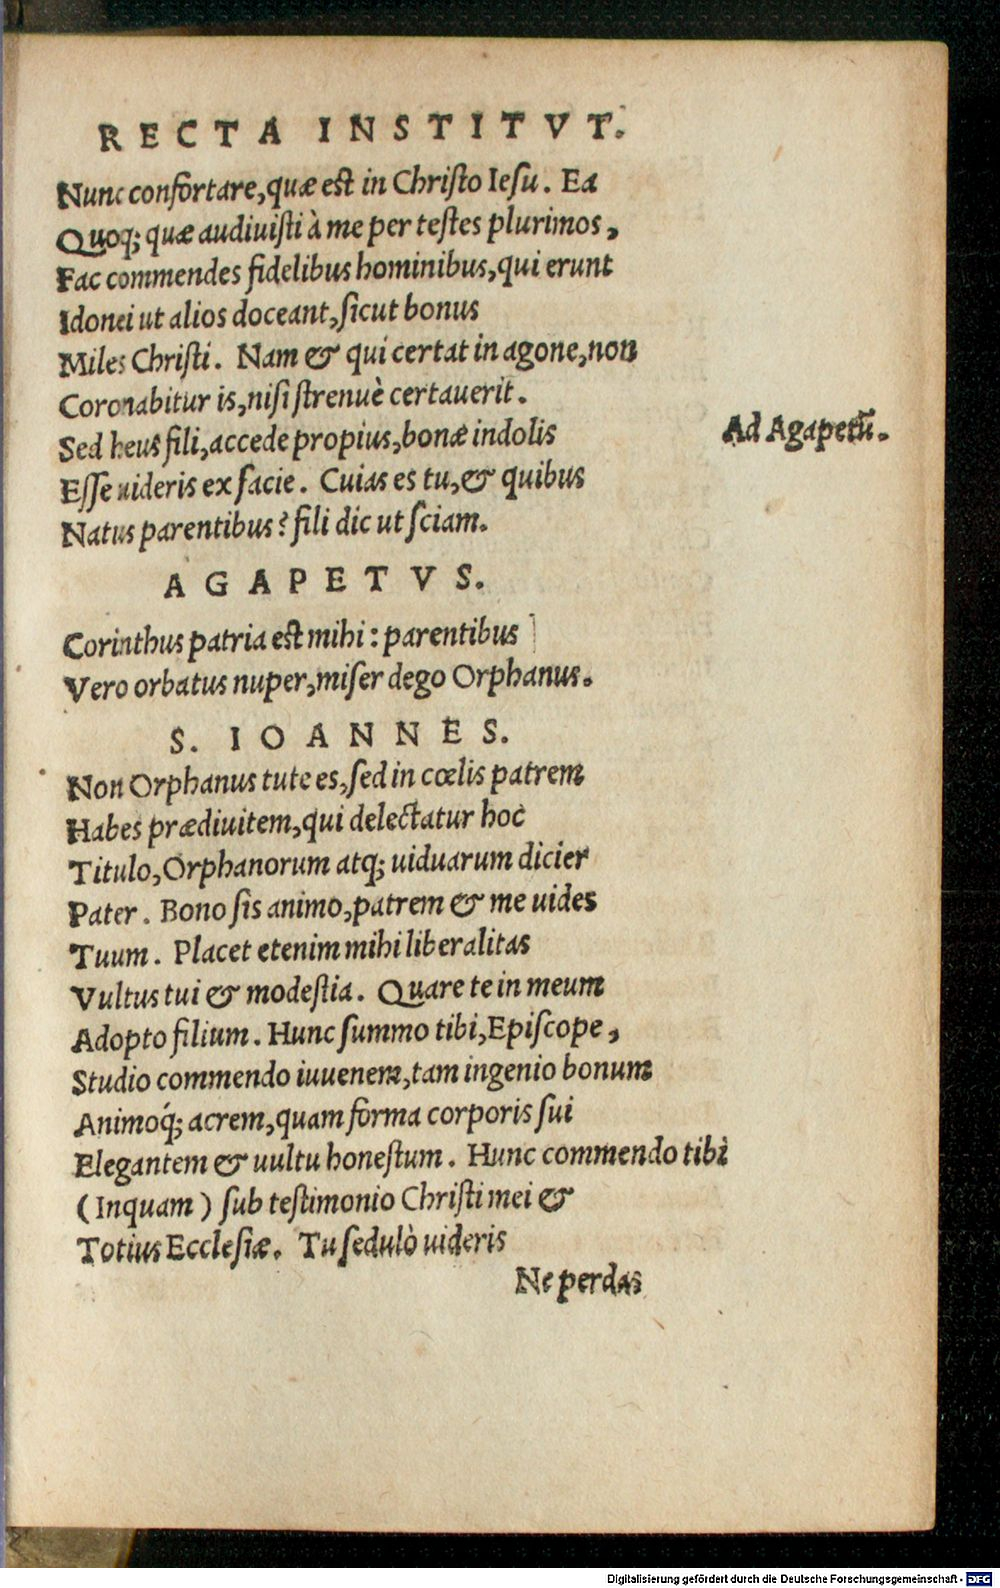 RECTA INSTITVT.
Nunc confortare, quæ est in Christo Iesu. Ea
Quoq; quæ audiuisti à me per testes plurimos,
Fac commendes fidelibus hominibus, qui erunt
Idonei ut alios doceant, sicut bonus
Miles Christi. Nam & qui certat in agone, non
Coronabitur is, nisi strenuè certauerit.
Sed heus fili, accede propius, bonæ indolis
Ad Agapetũ.
Esse uideris ex facie. Cuias es tu, & quibus
Natus parentibus? fili dic ut sciam.
AGAPETVS.
Corinthus patria est mihi: parentibus
Vero orbatus nuper, miser dego Orphanus.
S. IOANNES.
Non Orphanus tute es, sed in cœlis patrem
Habes prædiuitem, qui delectatur hoc
Titulo, Orphanorum atq; uiduarum dicier
Pater. Bono sis animo, patrem & me uides
Tuum. Placet etenim mihi liberalitas
Vultus tui & modestia. Quare te in meum
Adopto filium. Hunc summo tibi, Episcope,
Studio commendo iuuenem, tam ingenio bonum
Animoq́; acrem, quam forma corporis sui
Elegantem & uultu honestum. Hunc commendo tibi
(Inquam) sub testimonio Christi mei &
Totius Ecclesiæ. Tu sedulò uideris
Ne perdas
Digitalisierung gefördert durch die Deutsche Forschungsgemeinschaft - DFG